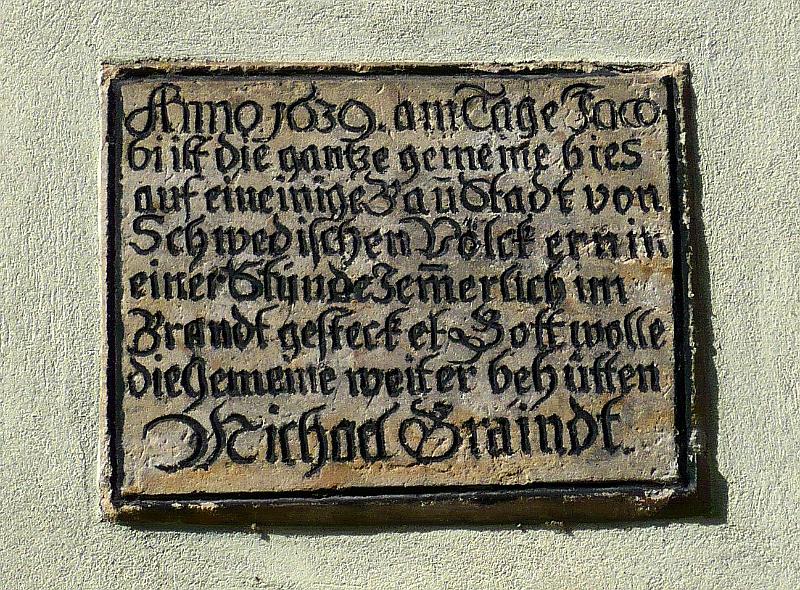 Anno 1639. am Tage Jaco
bi ist die gantze gemeine bies
auf eineinige Bau Stadt von
Schwedischen Völck ern in
einer Stunde Jem̄erlich im
Brandt gesteck et Gott wolle
die Gemeine weiter beh ütten
Michael Graindt.